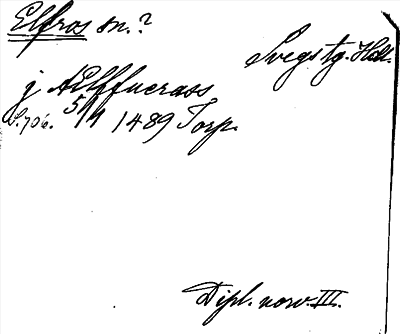 Elfros sn.?
Svegs tg. Hdl.
jÆlffuerass
S.706. 5/4 1489 Torp.
Dipl. norv. III.